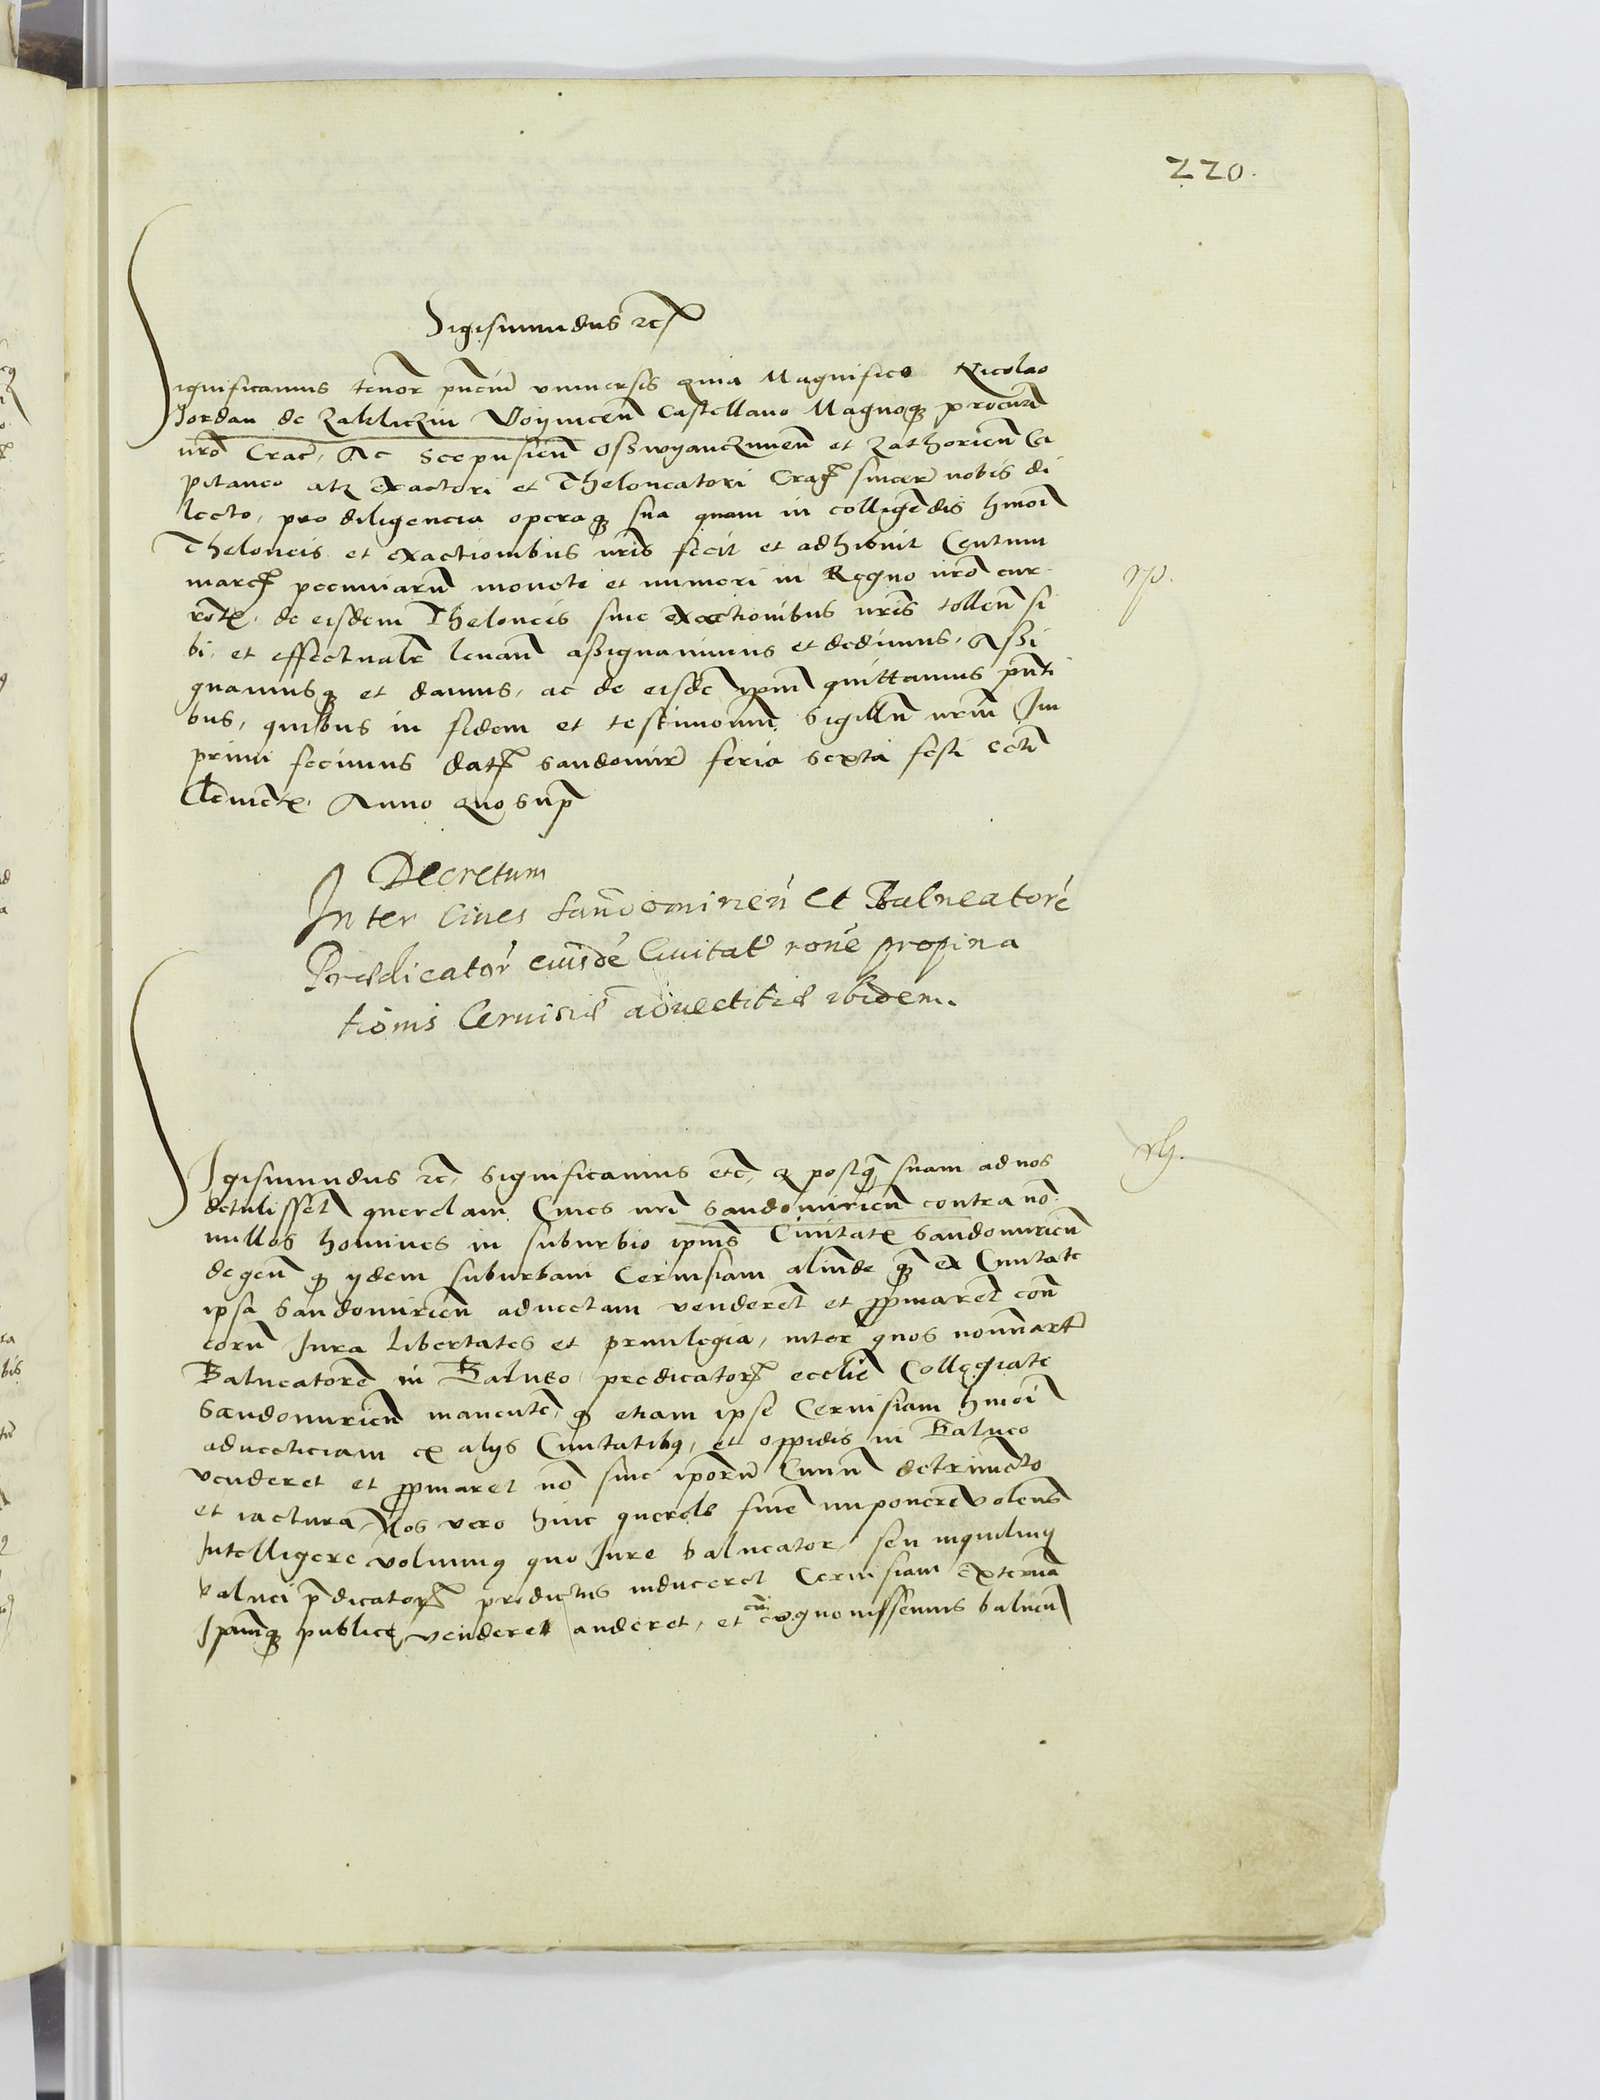 220.
Sigismundus etc
Significamus tenor pntium universis quia Magnifico Nicolao
Jordan de Zakliczin Voyniceñ Castellano Magnoq procur
nro Crac, Ac Scepusieñ Osswyanczimeñ et Zathorieñ Ca
pitaneo atq Exactori et Theloneatori Crac sincer nobis di
lecto, pro diligencia operaq sua quam in colligendis hmoi
Theloneis et exactionibus nris fecit et adhibuit Centum
marc pecuniarum monete et numeri in Regno nro cur
rent, de eisdem Theloneis sive exactionibus nris tolleñ si
bi, et effectualr levañ assignavimus et dedimus, Assi
gnamusq et damus, ac de eisdem ipm quittamus pnti
bus, quibus in fidem et testimonium Sigillum nrm Im
primi fecimus dat Sandomir feria sexta festi scti
Clementis, Anno quo supra
Decretum
Inter Cives Sandomirien et Balneatore
Predicator eiusde Civitat rone propina
tionis Cervisie advectitie ibidem.
Sigismundus etc, Significamus etc, q postq suam ad nos
detulissent querelam Cives nri Sandomirieñ contra no
nullos homines in suburbio ipius Civitatis Sandomirieñ
degeñ q ydem suburbani Cervisiam aliunde q ex Civitate
ipsa Sandomirieñ advectam venderent et ppinarent con
eorum Jura libertates et privilegia, inter quos nominart
Balneatorem in Balneo predicator ecclie Collegiate
Sandomirieñ manentem, q etiam ipse Cervisiam hmoi
advecticiam ex alys Civitatibus, et oppidis in Balneo
venderet et ppinaret no sine iporum Civium detrimento
et iactura, Nos vero huic querele finem imponere volens
Intelligere volumus quo Jure balneator, seu inquilinus
balnei pdicator predictus induceret Cervisiam externam
Ipamq publice venderet auderet, et cum cognovissemus balneum